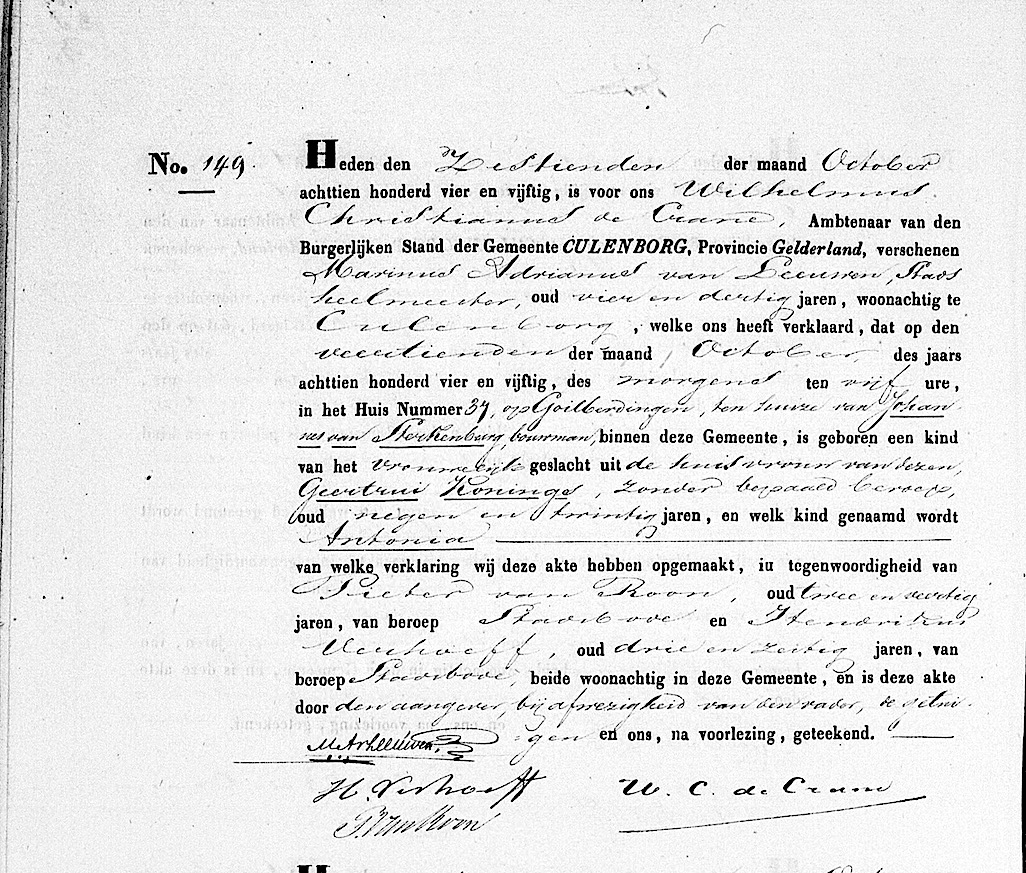 No. 149. Heden den Zestienden der maand October
achttien honderd vier en vijftig, is voor ons Wilhelmus
Christianus de Crane, Ambtenaar van den
Burgerlijken Stand der Gemeente CULENBORG, Provincie Gelderland, verschenen
Marinus Adrianus van Leeuwen, Stads
heelmeester, oud vier en dertig jaren, woonachtig te
Culenborg, welke ons heeft verklaard, dat op den
veertienden der maand October des jaars
achttien honderd vier en vijftig, des morgens ten vijf ure,
in het Huis Nummer 37, op Goilberdingen, ten huize van Johan-
nes van Sterkenburg, bouwman, binnen deze Gemeente, is geboren een kind
van het vrouwelijk geslacht uit de huisvrouw van dezen,
Geertrui Konings, zonder bepaald beroep,
oud negen en twintig jaren, en welk kind genaamd wordt
Antonia
van welke verklaring wij deze akte hebben opgemaakt, in tegenwoordigheid van
Pieter van Roon, oud twee en veertig
jaren, van beroep Stadsbode en Hendrikus
Verhoeff, oud drie en zestig jaren, van
beroep Stadsbode, beide woonachtig in deze Gemeente, en is deze akte
door den aangever, bij afwezigheid van den vader, de getui-
gen en ons, na voorlezing, geteekend.
M A v Leeuwen
H. Verhoeff W. C. de Crane
P. van Roon